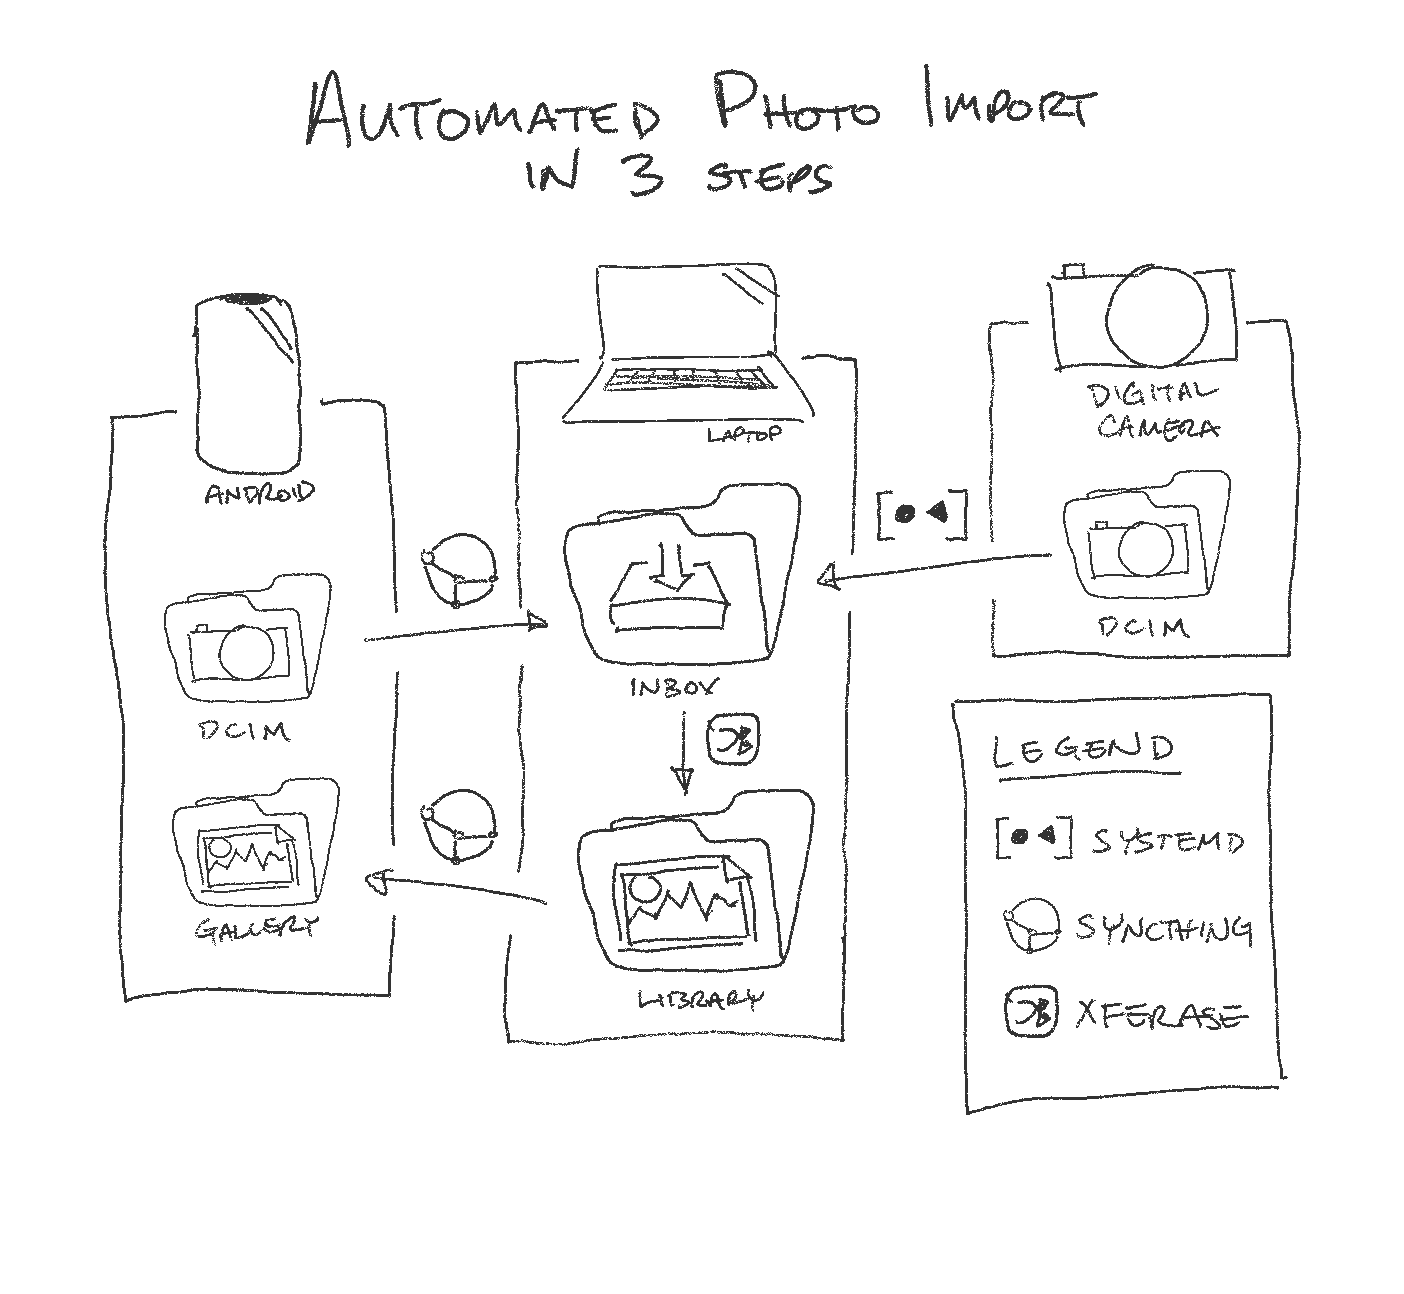 AUTOMATED PHOTO IMPORT
IN 3 STEPS
ANDROID
DCIM
GALLERY
LAPTOP
INBOX
LIBRARY
DIGITAL
CAMERA
DCIM
LEGEND
SYSTEMD
SYNCTHING
XFERASE